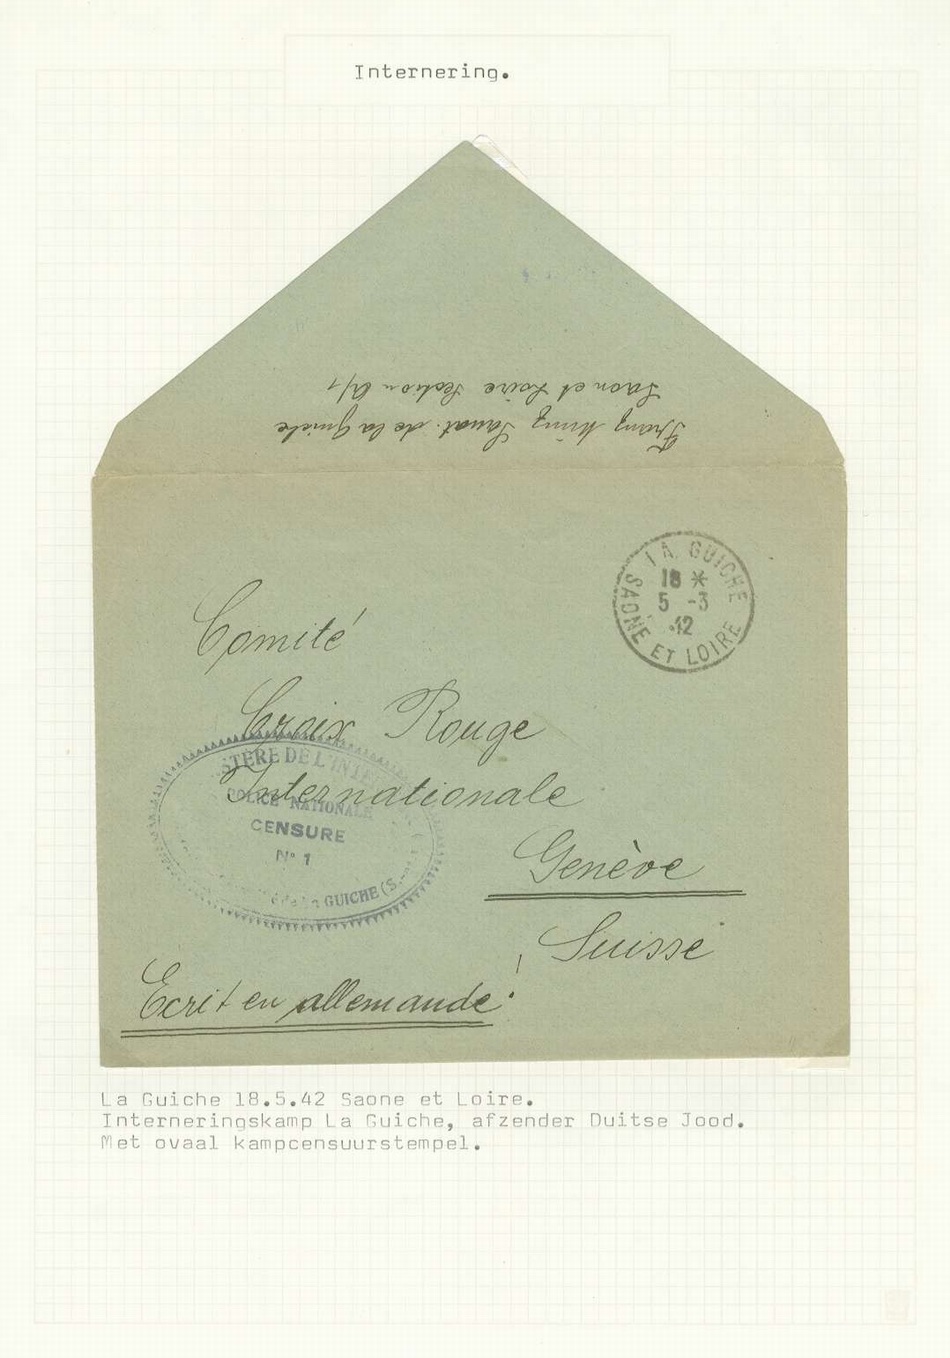 Internering.
Sanat. de la Guiche
Saon et Loire Section A/1
LA GUICHE
18 *
5 -3
42
SAONE ET LOIRE
Comité
Croix Rouge
STÈRE DE L'INTE
POLICE NATIONALE
Internationale
CENSURE
N° 1
de la GUICHE (S.
Genève
Suisse
Ecrit en allemande.
La Guiche 18.5.42 Saone et Loire.
Interneringskamp La Guiche, afzender Duitse Jood.
Met ovaal kampcensuurstempel.